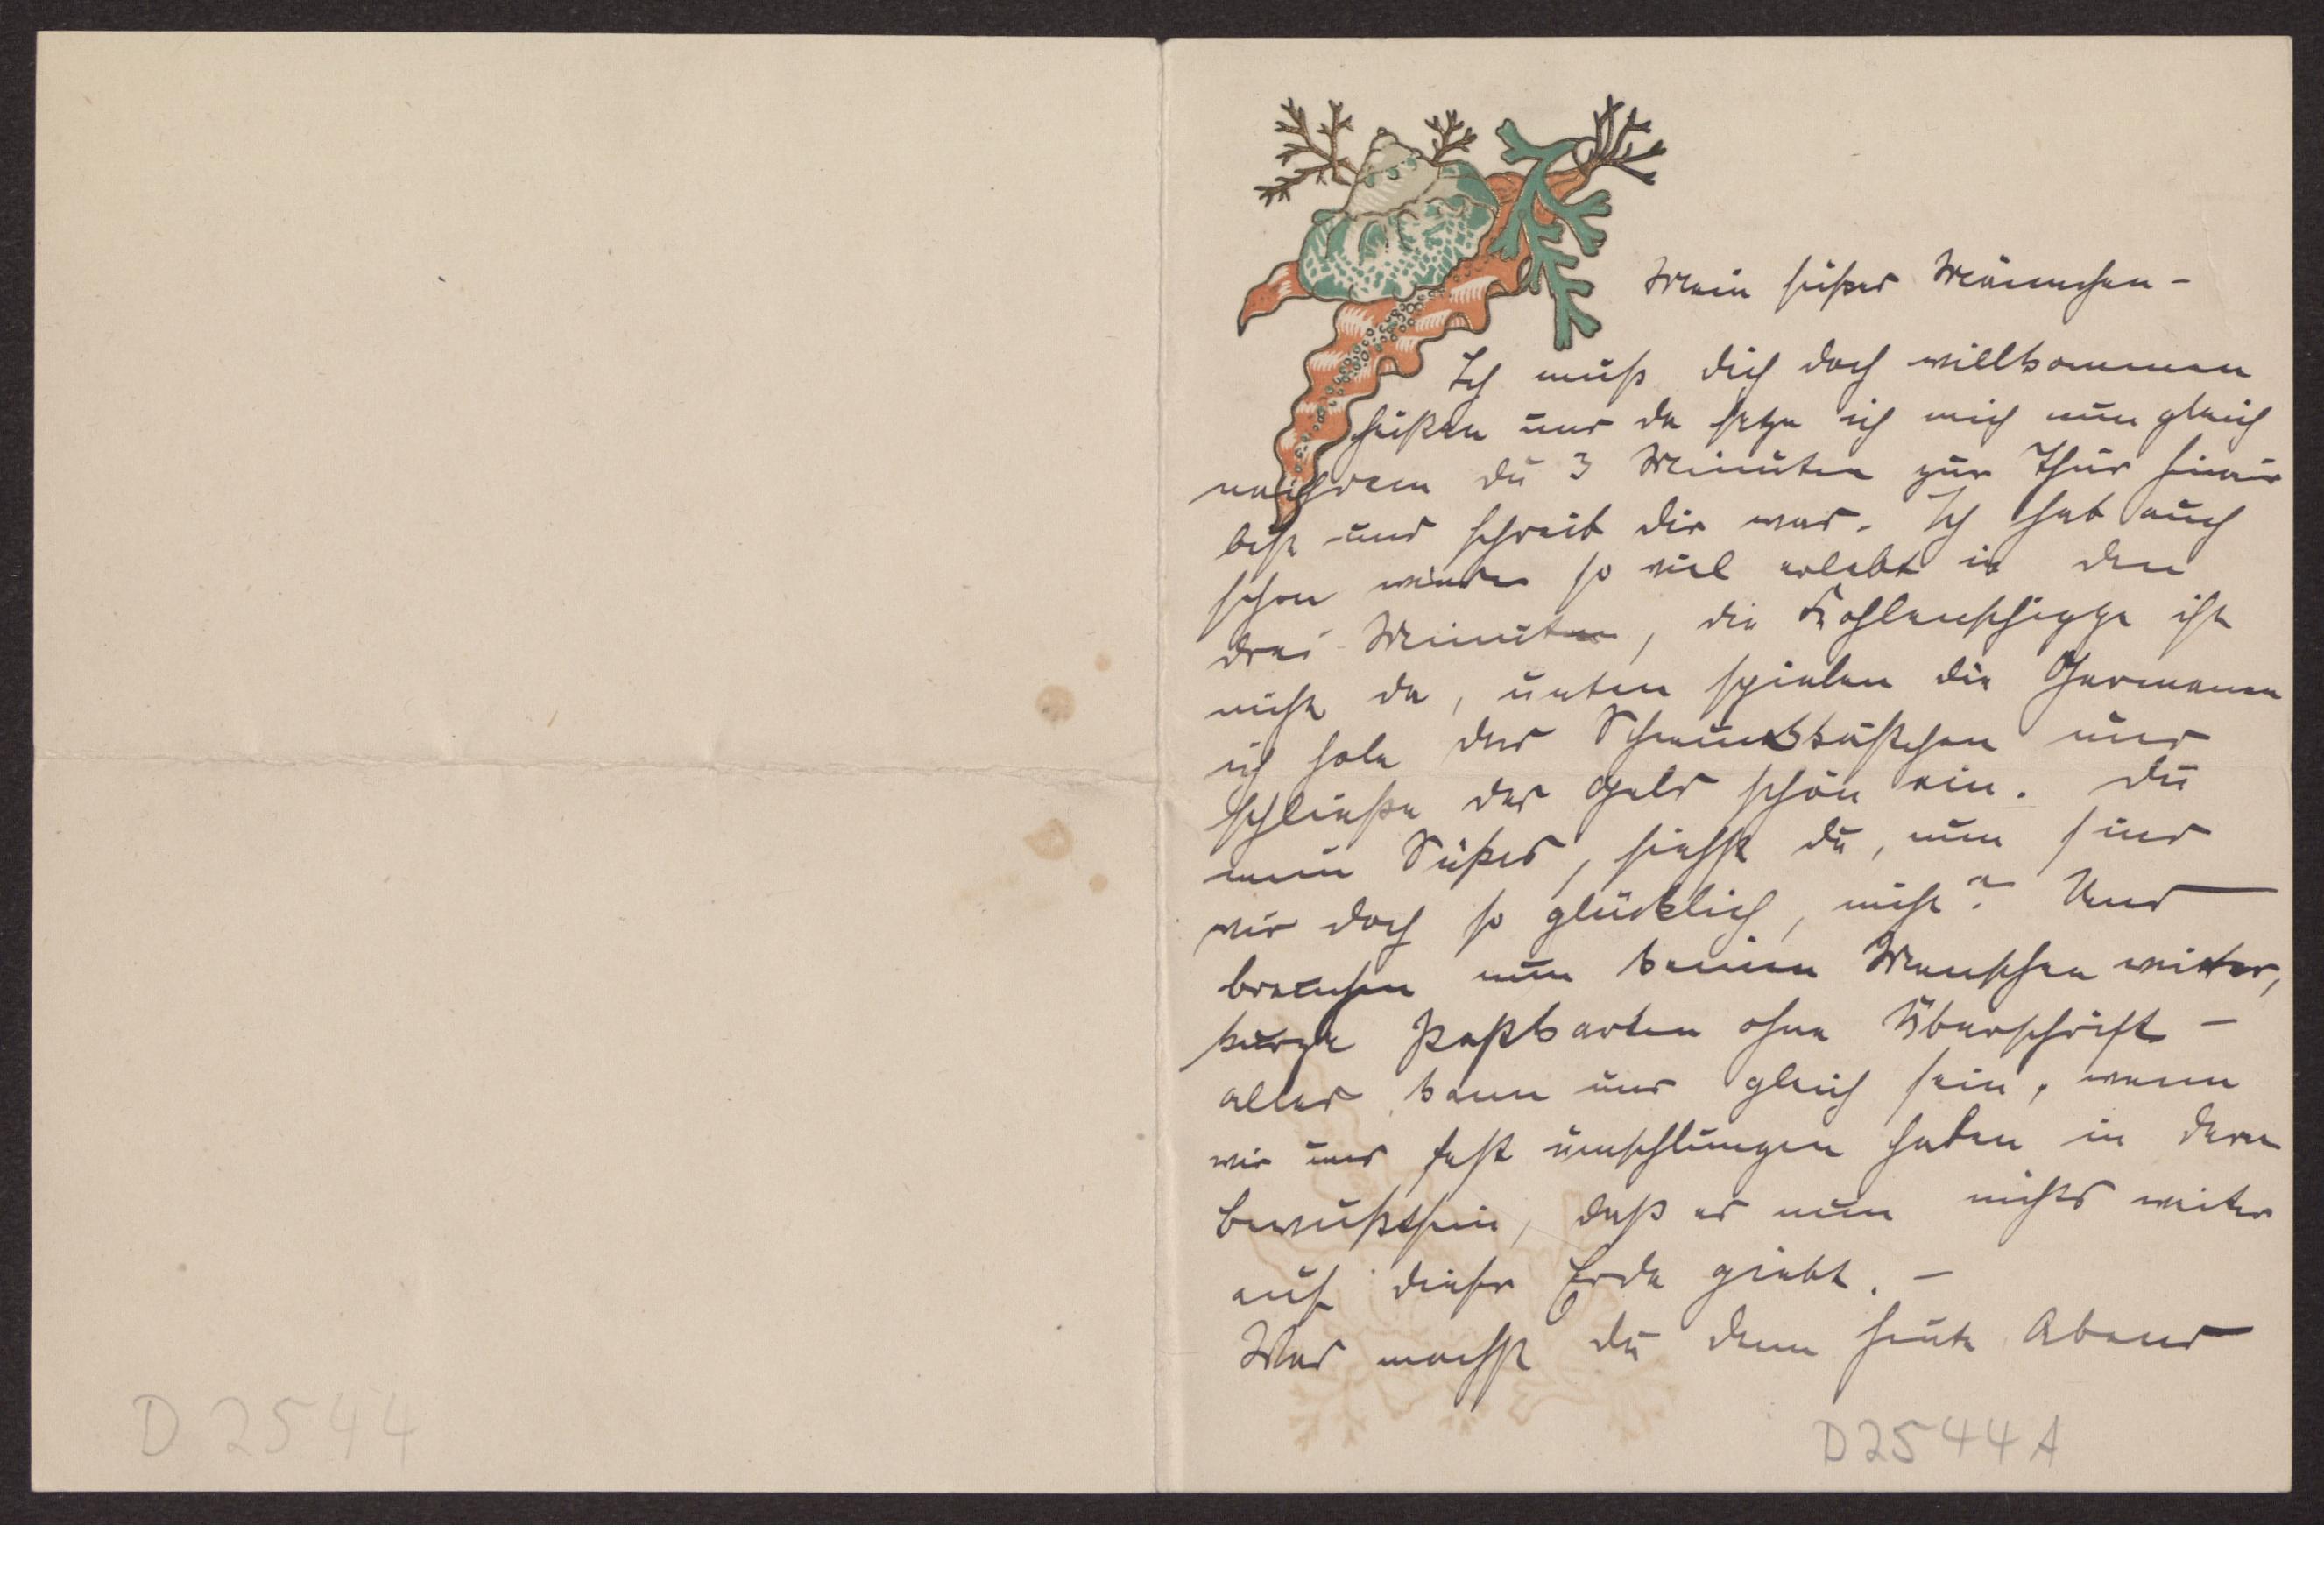 Mein süßes Männchen -
Ich muß dich doch willkommen
heißen und da setze ich mich nun gleich
nachdem du 3 Minuten zur Thür hinaus
bist und schreib dir was. Ich hab auch
schon wieder so viel erlebt in den
drei Minuten, die Kohlenschippe ist
nicht da, unten spielen die Germanen
ich hole das Schmuckkästchen und
schließe das Geld schön ein. Du
mein Süßes, siehst du, nun sind
wir doch so glücklich, nicht? Und
brauchen nun keinen Menschen weiter,
kurze Postkarten ohne Überschrift -
alles kann uns gleich sein, wenn
wir uns fest umschlungen haben in dem
Bewußtsein, daß es nun nichts weiter
auf dieser Erde giebt. -
Was machst du denn heute Abend
D 2544
D2544A